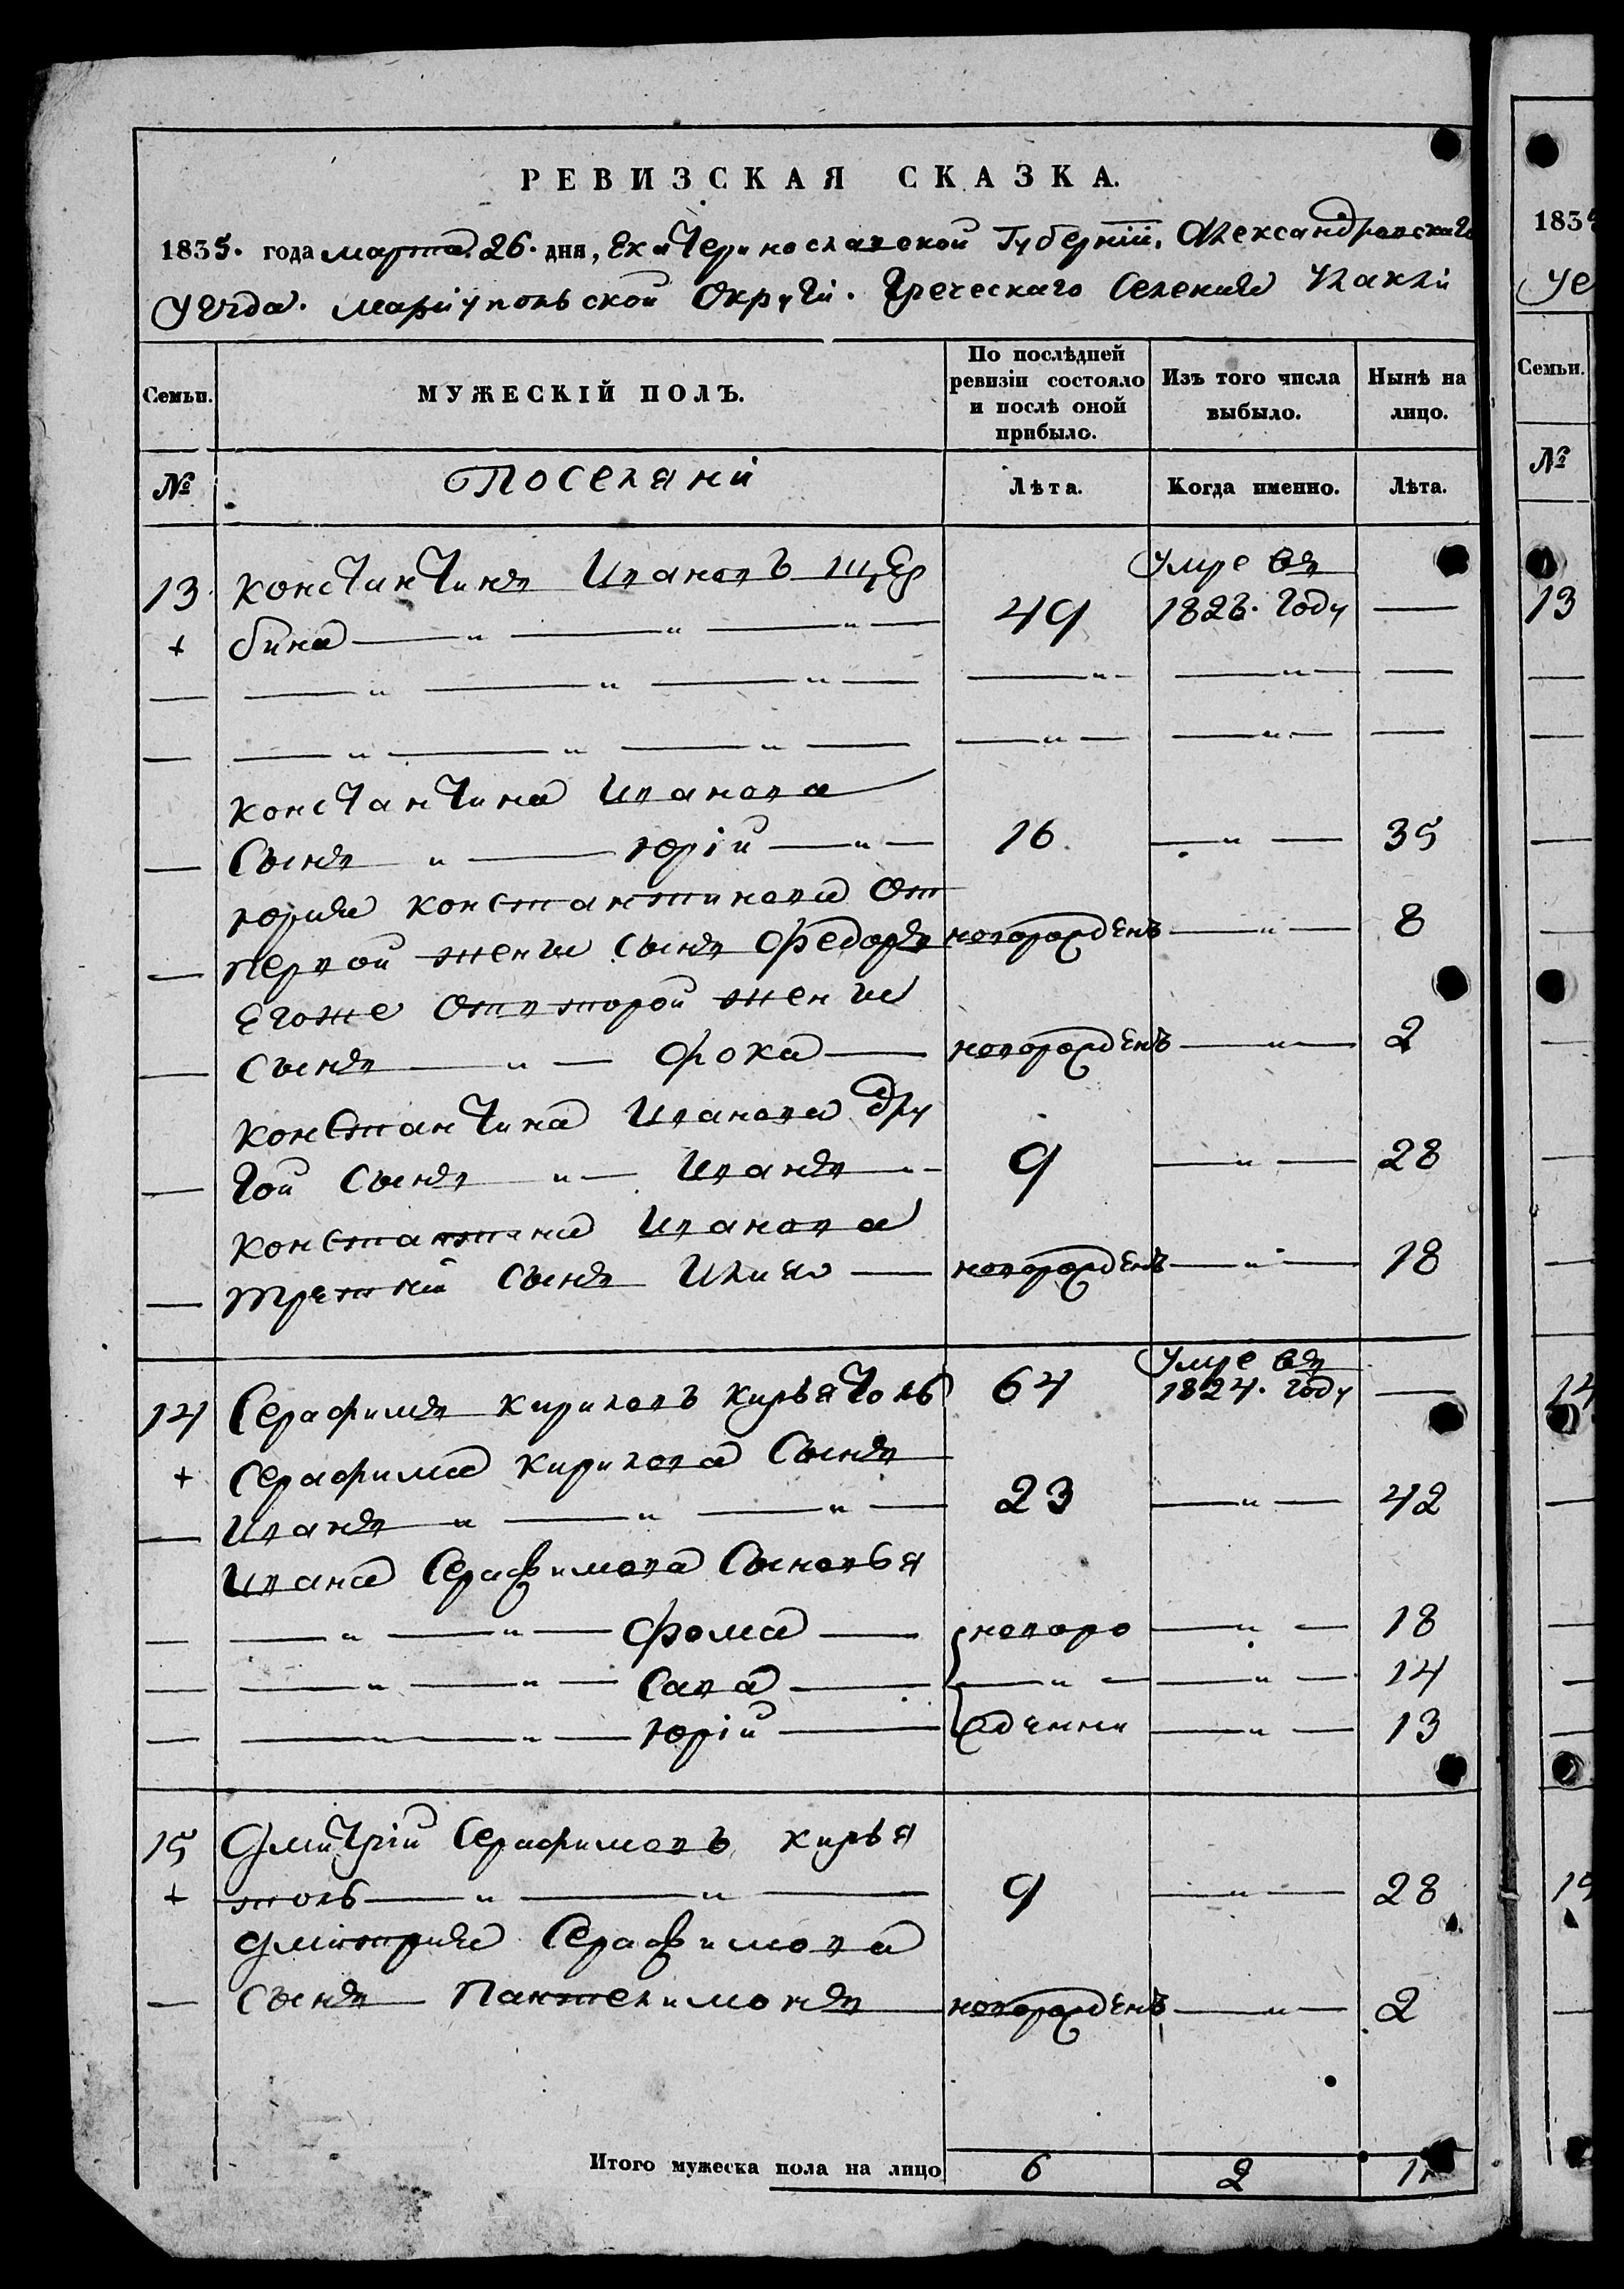 РЕВИЗСКАЯ СКАЗКА.
1835. года марта 26. дня, Екатеринославской Губернии, Александровскаго
Уезда. Мариупольской Округи. Греческаго Селения
Семьи. МУЖЕСКІЙ ПОЛЪ. По послѣдней ревизіи состояло и послѣ оной прибыло. Изъ того числа выбыло. Нынѣ на лицо.
№ Поселяни Лѣта. Когда именно. Лѣта.
13 Константинъ Ивановъ Щер умре въ
+ бина 49 1823. году —
Константина Иванова
— Сынъ Юрій 16. 35
Юрия Константинова от
— первой жены Сынъ Федоръ новорожденъ 8
Егоже от второй жены
— Сынъ Фока новорожденъ 2
Константина Иванова дру
— гой Сынъ Иванъ 9 28
Константина Иванова
— третий Сынъ Илия новорожденъ 18
умре въ
14 Серафимъ Кириловъ Кирьяковъ 64 1824. году —
+ Серафима Кирилова Сынъ
— Иванъ 23 42
Ивана Серафимова Сыновья
— Фома новоро 18
— Сава 14
— Юрій жденни 13
15 Дмитрій Серафимовъ Кирья
+ 9 28
Дмитрия Серафимова
— Сынъ Пантелимонъ новорожденъ 2
Итого мужеска пола на лицо 6 2
1835
Уе
Семьи.
№
13
14
15